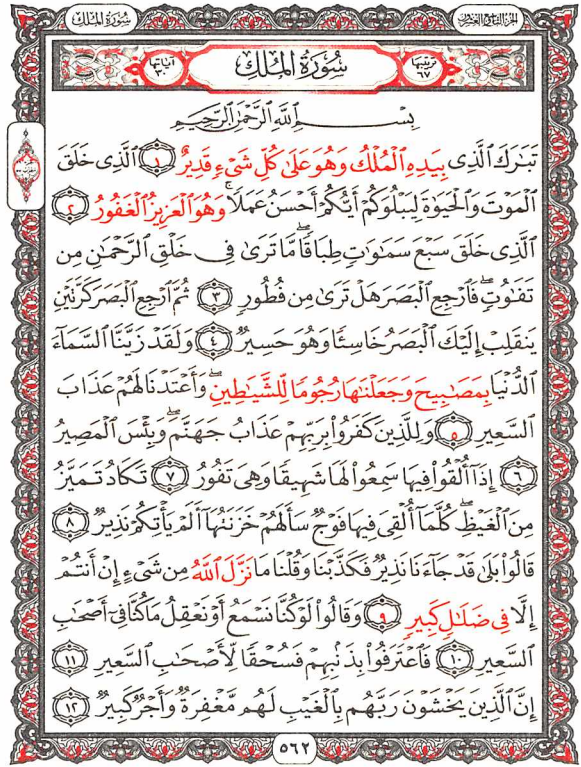 سُورَةُ المُلْكِ
الجزء التاسع والعشرون
ترتيبها ٦٧
سُورَةُ المُلْكِ
آياتها ٣٠
بِسْمِ ٱللَّهِ ٱلرَّحْمَٰنِ ٱلرَّحِيمِ
تَبَٰرَكَ ٱلَّذِى بِيَدِهِ ٱلْمُلْكُ وَهُوَ عَلَىٰ كُلِّ شَىْءٍ قَدِيرٌ ١ ٱلَّذِى خَلَقَ
ٱلْمَوْتَ وَٱلْحَيَوٰةَ لِيَبْلُوَكُمْ أَيُّكُمْ أَحْسَنُ عَمَلًا ۚ وَهُوَ ٱلْعَزِيزُ ٱلْغَفُورُ ٢
ٱلَّذِى خَلَقَ سَبْعَ سَمَٰوَٰتٍ طِبَاقًا ۖ مَّا تَرَىٰ فِى خَلْقِ ٱلرَّحْمَٰنِ مِن
تَفَٰوُتٍ ۖ فَٱرْجِعِ ٱلْبَصَرَ هَلْ تَرَىٰ مِن فُطُورٍ ٣ ثُمَّ ٱرْجِعِ ٱلْبَصَرَ كَرَّتَيْنِ
يَنقَلِبْ إِلَيْكَ ٱلْبَصَرُ خَاسِئًا وَهُوَ حَسِيرٌ ٤ وَلَقَدْ زَيَّنَّا ٱلسَّمَآءَ
ٱلدُّنْيَا بِمَصَٰبِيحَ وَجَعَلْنَٰهَا رُجُومًا لِّلشَّيَٰطِينِ ۖ وَأَعْتَدْنَا لَهُمْ عَذَابَ
ٱلسَّعِيرِ ٥ وَلِلَّذِينَ كَفَرُوا۟ بِرَبِّهِمْ عَذَابُ جَهَنَّمَ ۖ وَبِئْسَ ٱلْمَصِيرُ
٦ إِذَآ أُلْقُوا۟ فِيهَا سَمِعُوا۟ لَهَا شَهِيقًا وَهِىَ تَفُورُ ٧ تَكَادُ تَمَيَّزُ
مِنَ ٱلْغَيْظِ ۖ كُلَّمَآ أُلْقِىَ فِيهَا فَوْجٌ سَأَلَهُمْ خَزَنَتُهَآ أَلَمْ يَأْتِكُمْ نَذِيرٌ ٨
قَالُوا۟ بَلَىٰ قَدْ جَآءَنَا نَذِيرٌ فَكَذَّبْنَا وَقُلْنَا مَا نَزَّلَ ٱللَّهُ مِن شَىْءٍ إِنْ أَنتُمْ
إِلَّا فِى ضَلَٰلٍ كَبِيرٍ ٩ وَقَالُوا۟ لَوْ كُنَّا نَسْمَعُ أَوْ نَعْقِلُ مَا كُنَّا فِىٓ أَصْحَٰبِ
ٱلسَّعِيرِ ١٠ فَٱعْتَرَفُوا۟ بِذَنۢبِهِمْ فَسُحْقًا لِّأَصْحَٰبِ ٱلسَّعِيرِ ١١
إِنَّ ٱلَّذِينَ يَخْشَوْنَ رَبَّهُم بِٱلْغَيْبِ لَهُم مَّغْفِرَةٌ وَأَجْرٌ كَبِيرٌ ١٢
٥٦٢